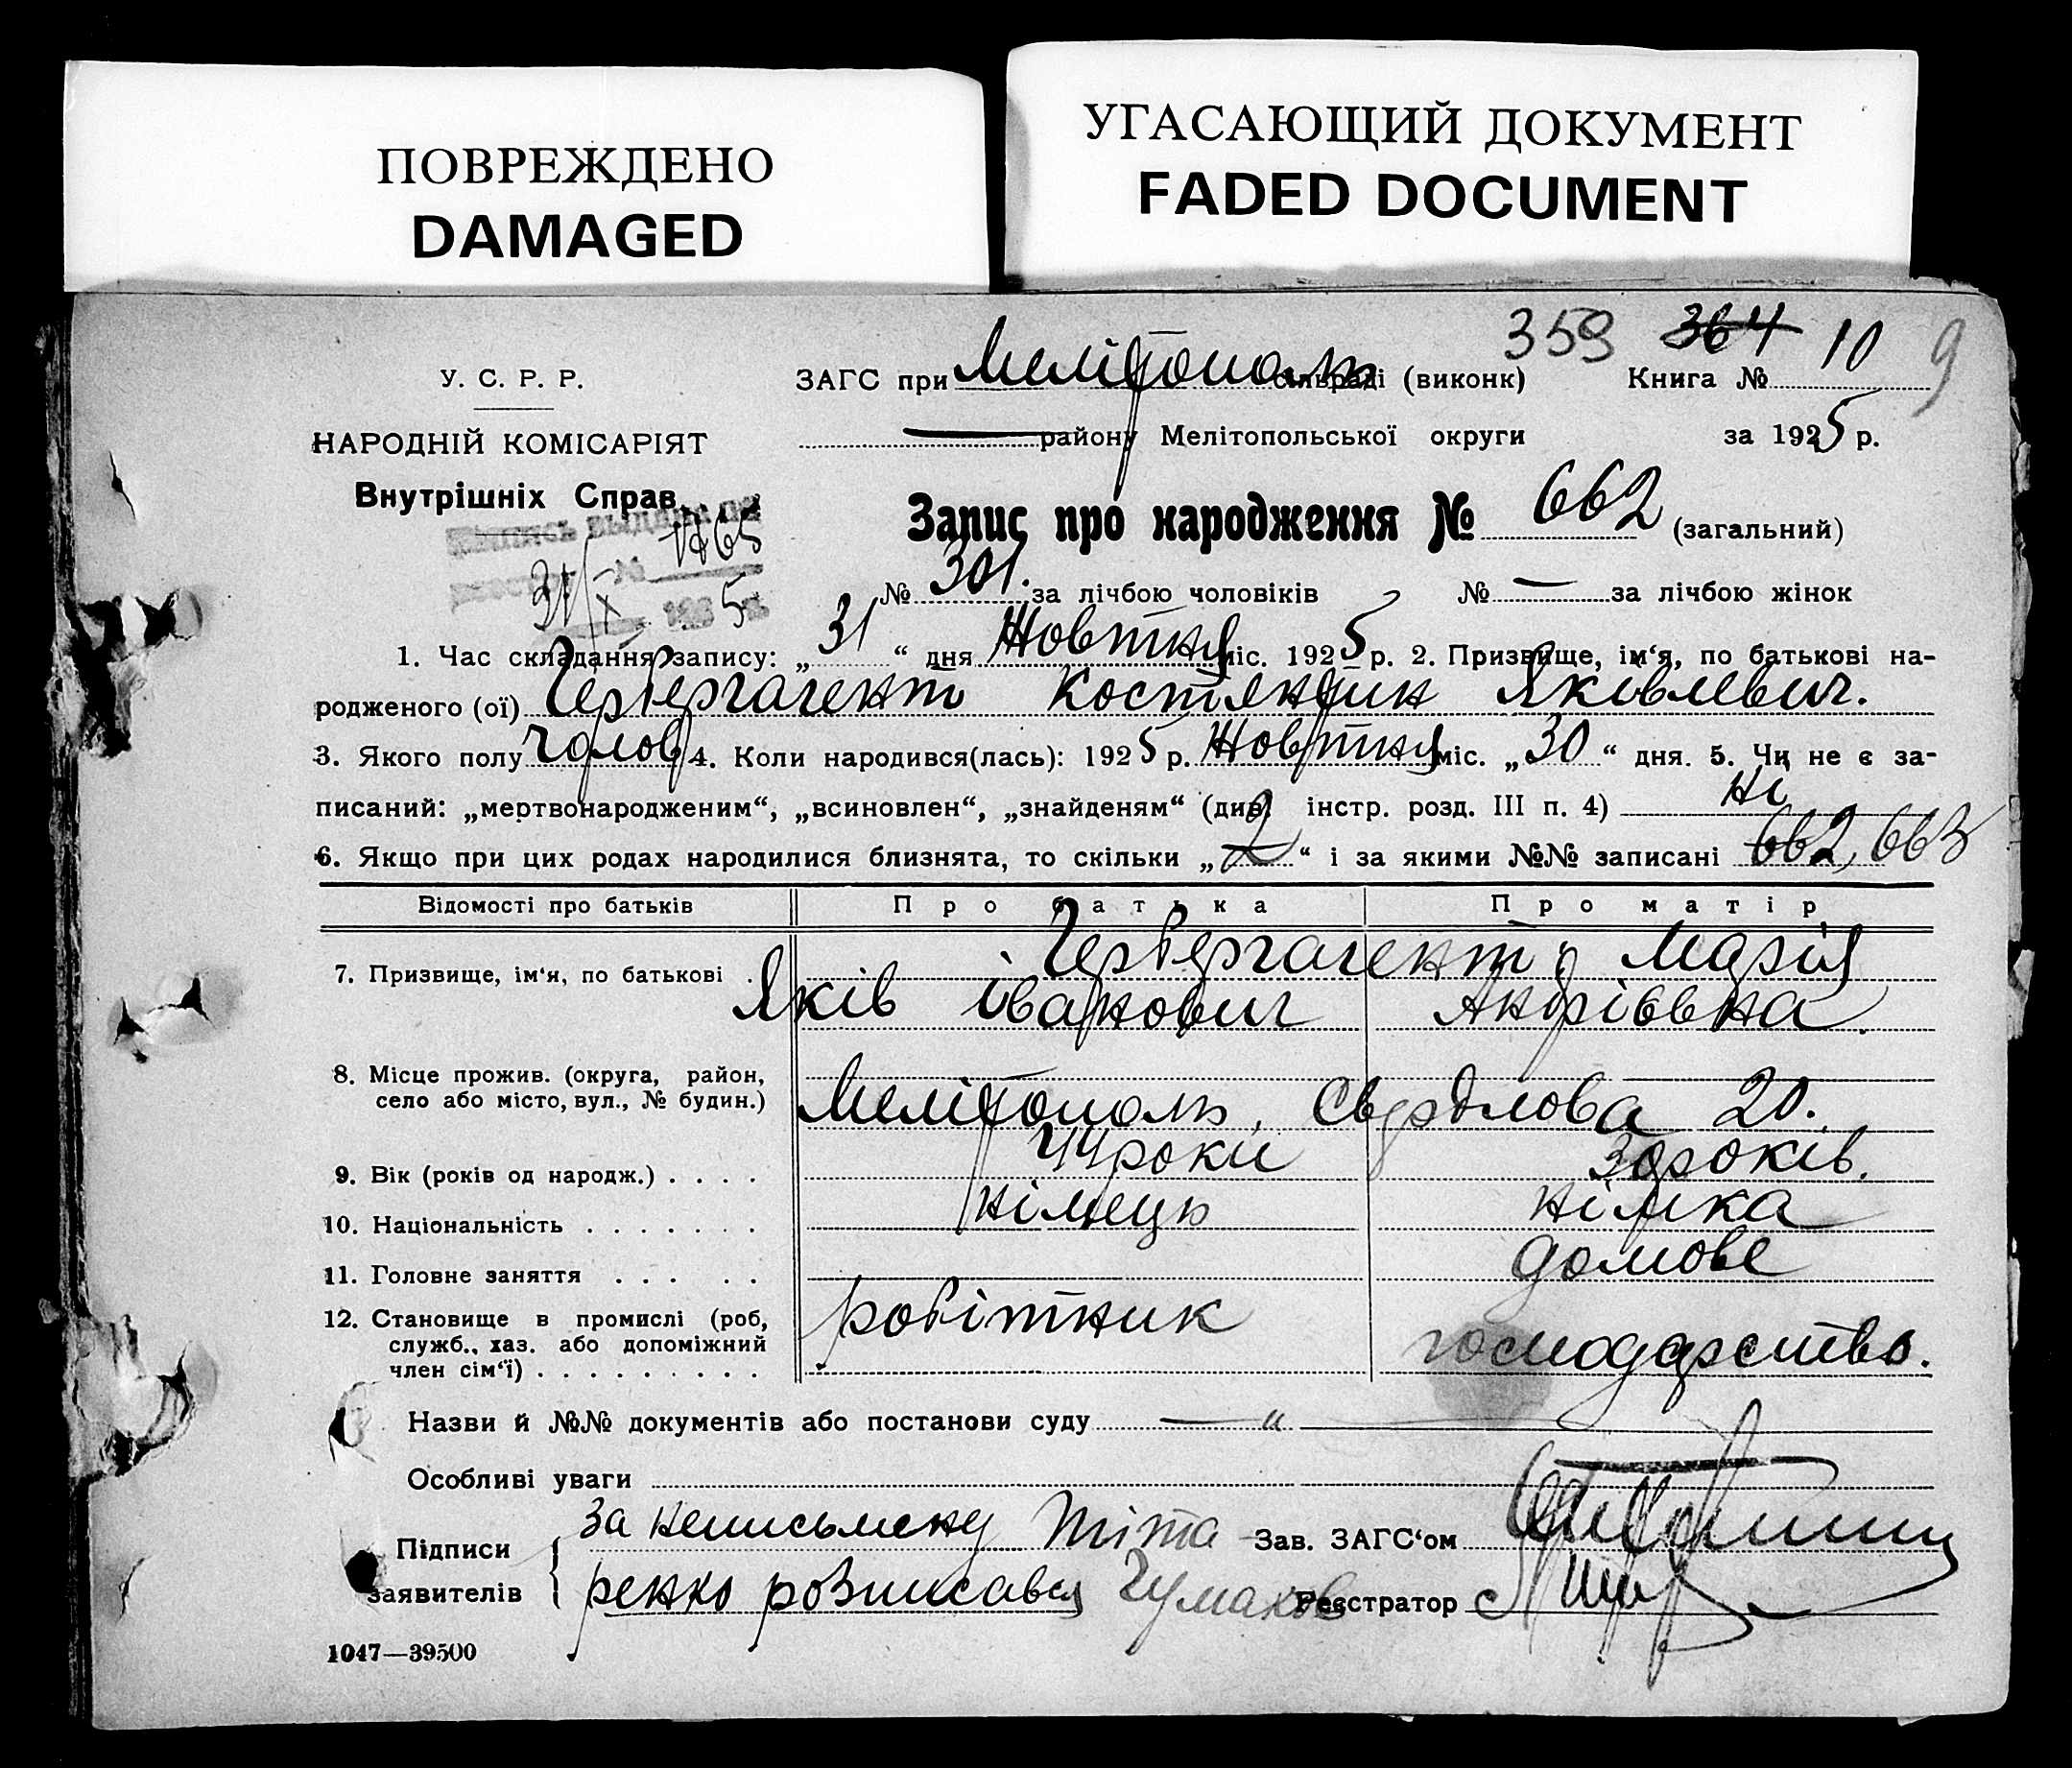 ПОВРЕЖДЕНО
DAMAGED
УГАСАЮЩИЙ ДОКУМЕНТ
FADED DOCUMENT
359 364 10 9
У. С. Р. Р.
ЗАГС при Мелітополь сільраді (виконк) Книга №
НАРОДНІЙ КОМІСАРІЯТ
— району Мелітопольської округи за 1925 р.
Внутрішніх Справ.
Запис про народження № 662 (загальний)
31/X 5
№ 301. за лічбою чоловіків № — за лічбою жінок
1. Час складання запису: „31“ дня Жовтня міс. 1925 р. 2. Призвище, ім‘я, по батькові на-
родженого (ої) Костянтин Яковлевич.
3. Якого полу чолов 4. Коли народився(лась): 1925 р. Жовтня міс. „30“ дня. 5. Чи не є за-
писаний: „мертвонародженим“, „всиновлен“, „знайденям“ (див. інстр. розд. III п. 4) ні
6. Якщо при цих родах народилися близнята, то скільки „2“ і за якими №№ записані 662, 663
Відомості про батьків Про батька Про матір
7. Призвище, ім‘я, по батькові Марія
Яків Іванович Андріївна
8. Місце прожив. (округа, район,
село або місто, вул., № будин.) Мелітополь, Свердлова 20.
9. Вік (років од народж.) . . . . 44 роки 30 років.
10. Національність . . . . . . . німець німка
11. Головне заняття . . . . . домове
12. Становище в промислі (роб, робітник
служб., хаз. або допоміжний господарство.
член сім‘ї) . . . . . . . . .
Назви й №№ документів або постанови суду — „ —
Особливі уваги
за неписьмену Тіта Зав. ЗАГС‘ом
Підписи
заявителів ренко розписався Реєстратор
1047—39500